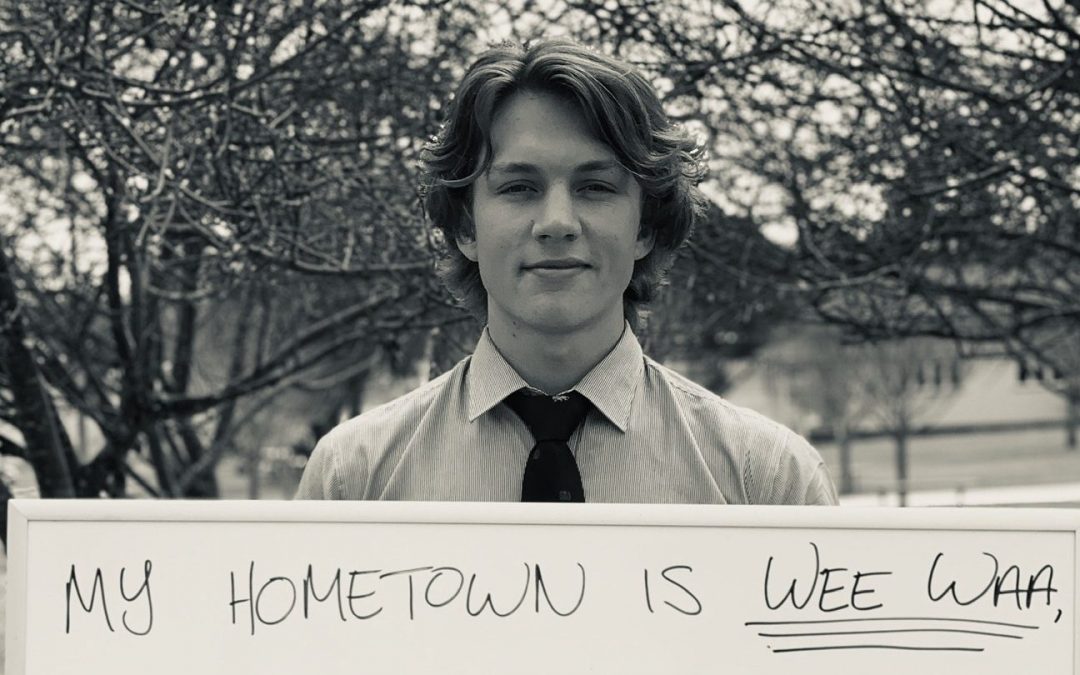 MY HOMETOWN IS WEE WAA,